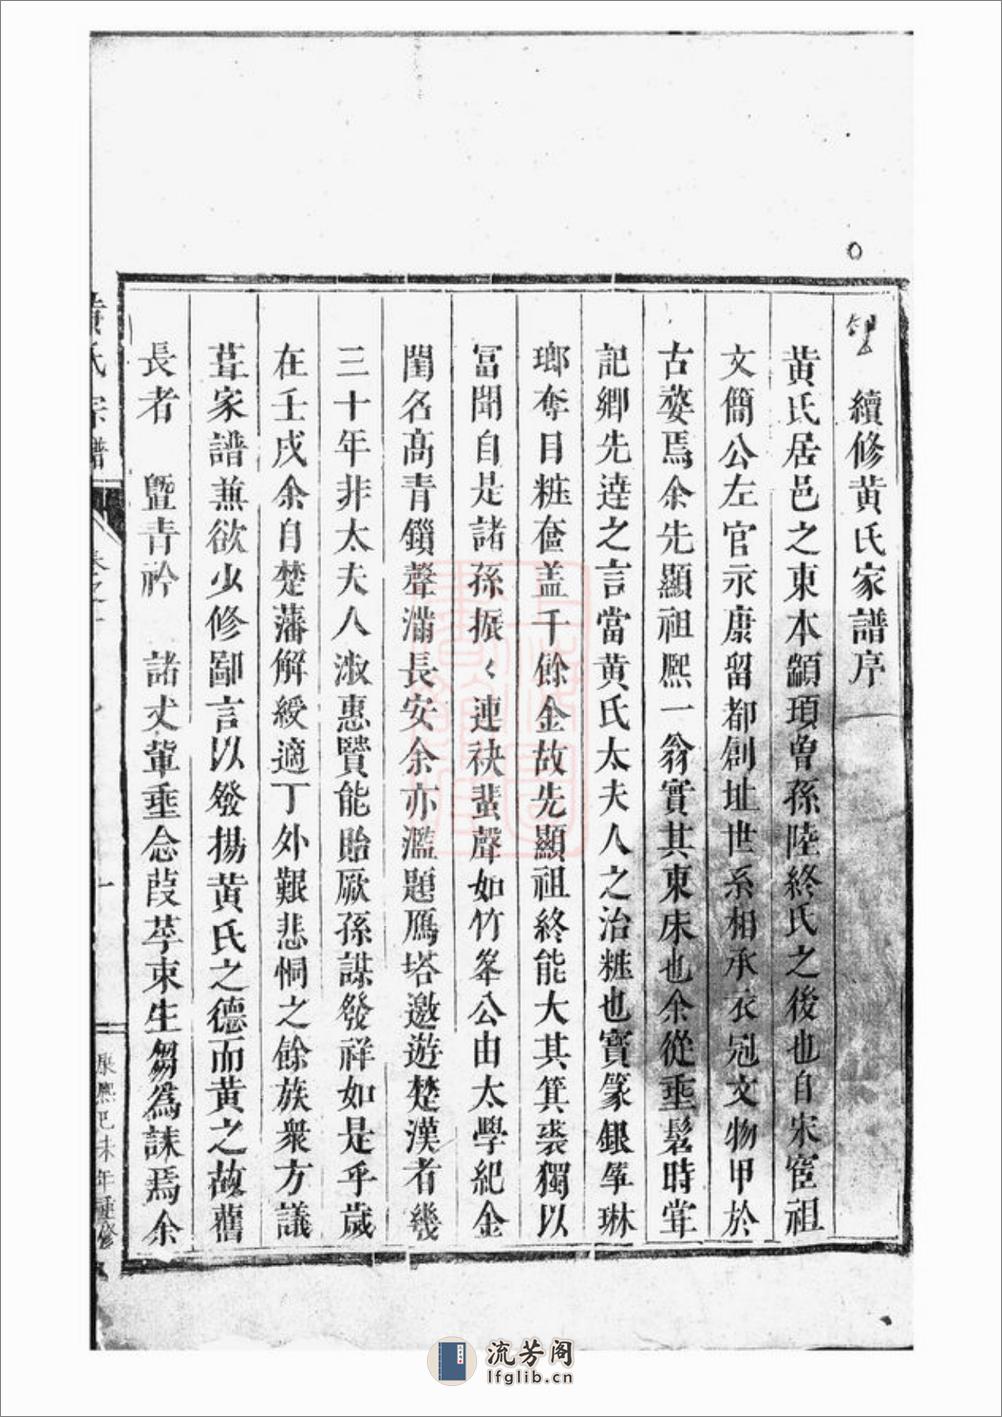 續修黄氏家譜序
黄氏居邑之東本顓頊曾孫陸終氏之後也自宋宦祖
文簡公左官永康留都創址世系相承衣冠文物甲於
古婺焉余先顯祖熈一翁實其東床也余從垂髫時甞
記鄉先達之言當黄氏太夫人之治粧也寳篆銀筝琳
瑯奪目粧奩盖千餘金故先顯祖終能大其箕裘獨以
冨聞自是諸孫振〻連袂蜚聲如竹峯公由太學紀金
閨名髙青鎖聲滿長安余亦濫題鴈塔遨遊楚漢者幾
三十年非太夫人淑惠賢能貽厥孫謀發祥如是乎歲
在壬戌余自楚藩解綬適丁外艱悲恫之餘族衆方議
葺家譜兼欲少修鄙言以發揚黄氏之德而黄之故舊
長者　暨青衿　諸丈輩垂念葭莩束生芻為誄焉余
黄氏宗譜
卷之一
康熈己未年重修
流芳阁
lfglib.cn